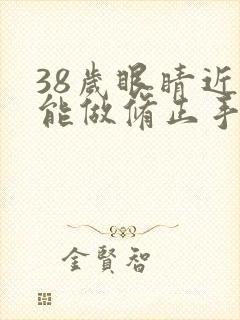 38歲眼睛近
能做脩止手
金賢智